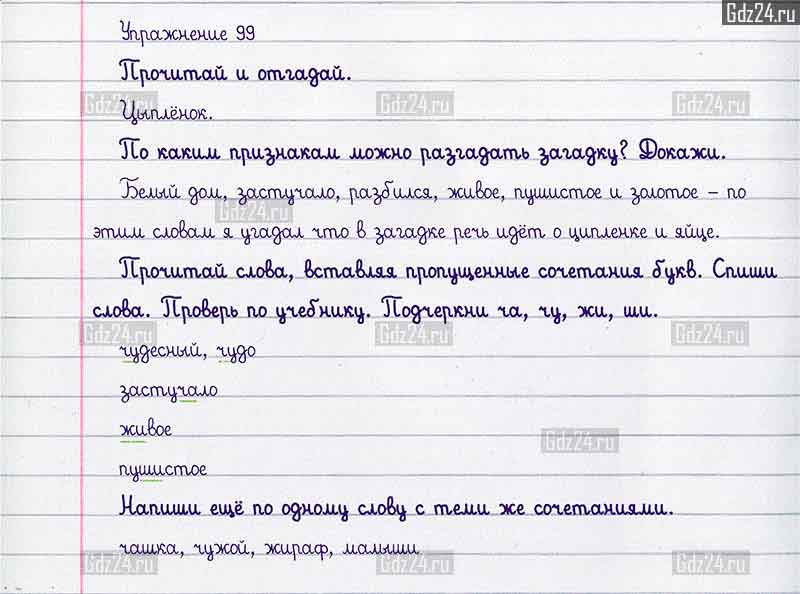 Gdz24.ru
Упражнение 99
Прочитай и отгадай.
Gdz24.ru Gdz24.ru Gdz24.ru
Цыплёнок.
По каким признакам можно разгадать загадку? Докажи.
Белый дом, застучало, разбился, живое, пушистое и золотое – по
Gdz24.ru
этим словам я угадал что в загадке речь идёт о ципленке и яйце.
Прочитай слова, вставляя пропущенные сочетания букв. Спиши
слова. Проверь по учебнику. Подчеркни ча, чу, жи, ши.
Gdz24.ru Gdz24.ru Gdz24.ru
чудесный, чудо
застучало
живое
Gdz24.ru
пушистое
Напиши ещё по одному слову с теми же сочетаниями.
чашка, чужой, жираф, малыши
Gdz24.ru Gdz24.ru Gdz24.ru